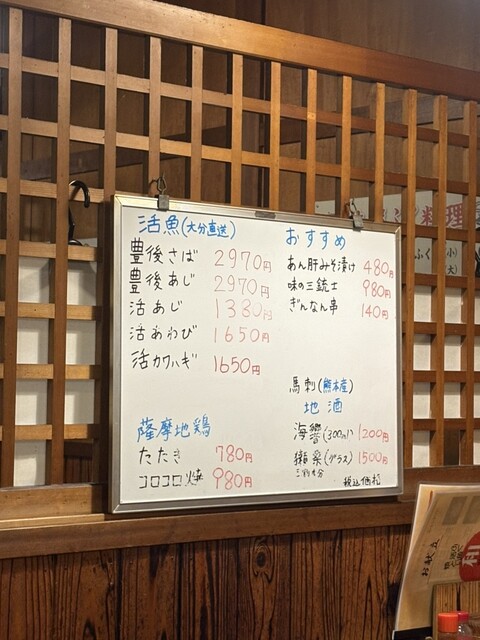 活魚(大分直送)
豊後さば 2970円
豊後あじ 2970円
活あじ 1330円
活あわび 1650円
活カワハギ 1650円
薩摩地鶏
たたき 780円
コロコロ焼 980円
おすすめ
あん肝みそ漬け 480円
味の三銃士 980円
ぎんなん串 140円
馬刺(熊本産)
地酒
海響(300ml) 1200円
獺祭(グラス) 1500円
税込価格
料理
ふく(小)
(大)
お献立